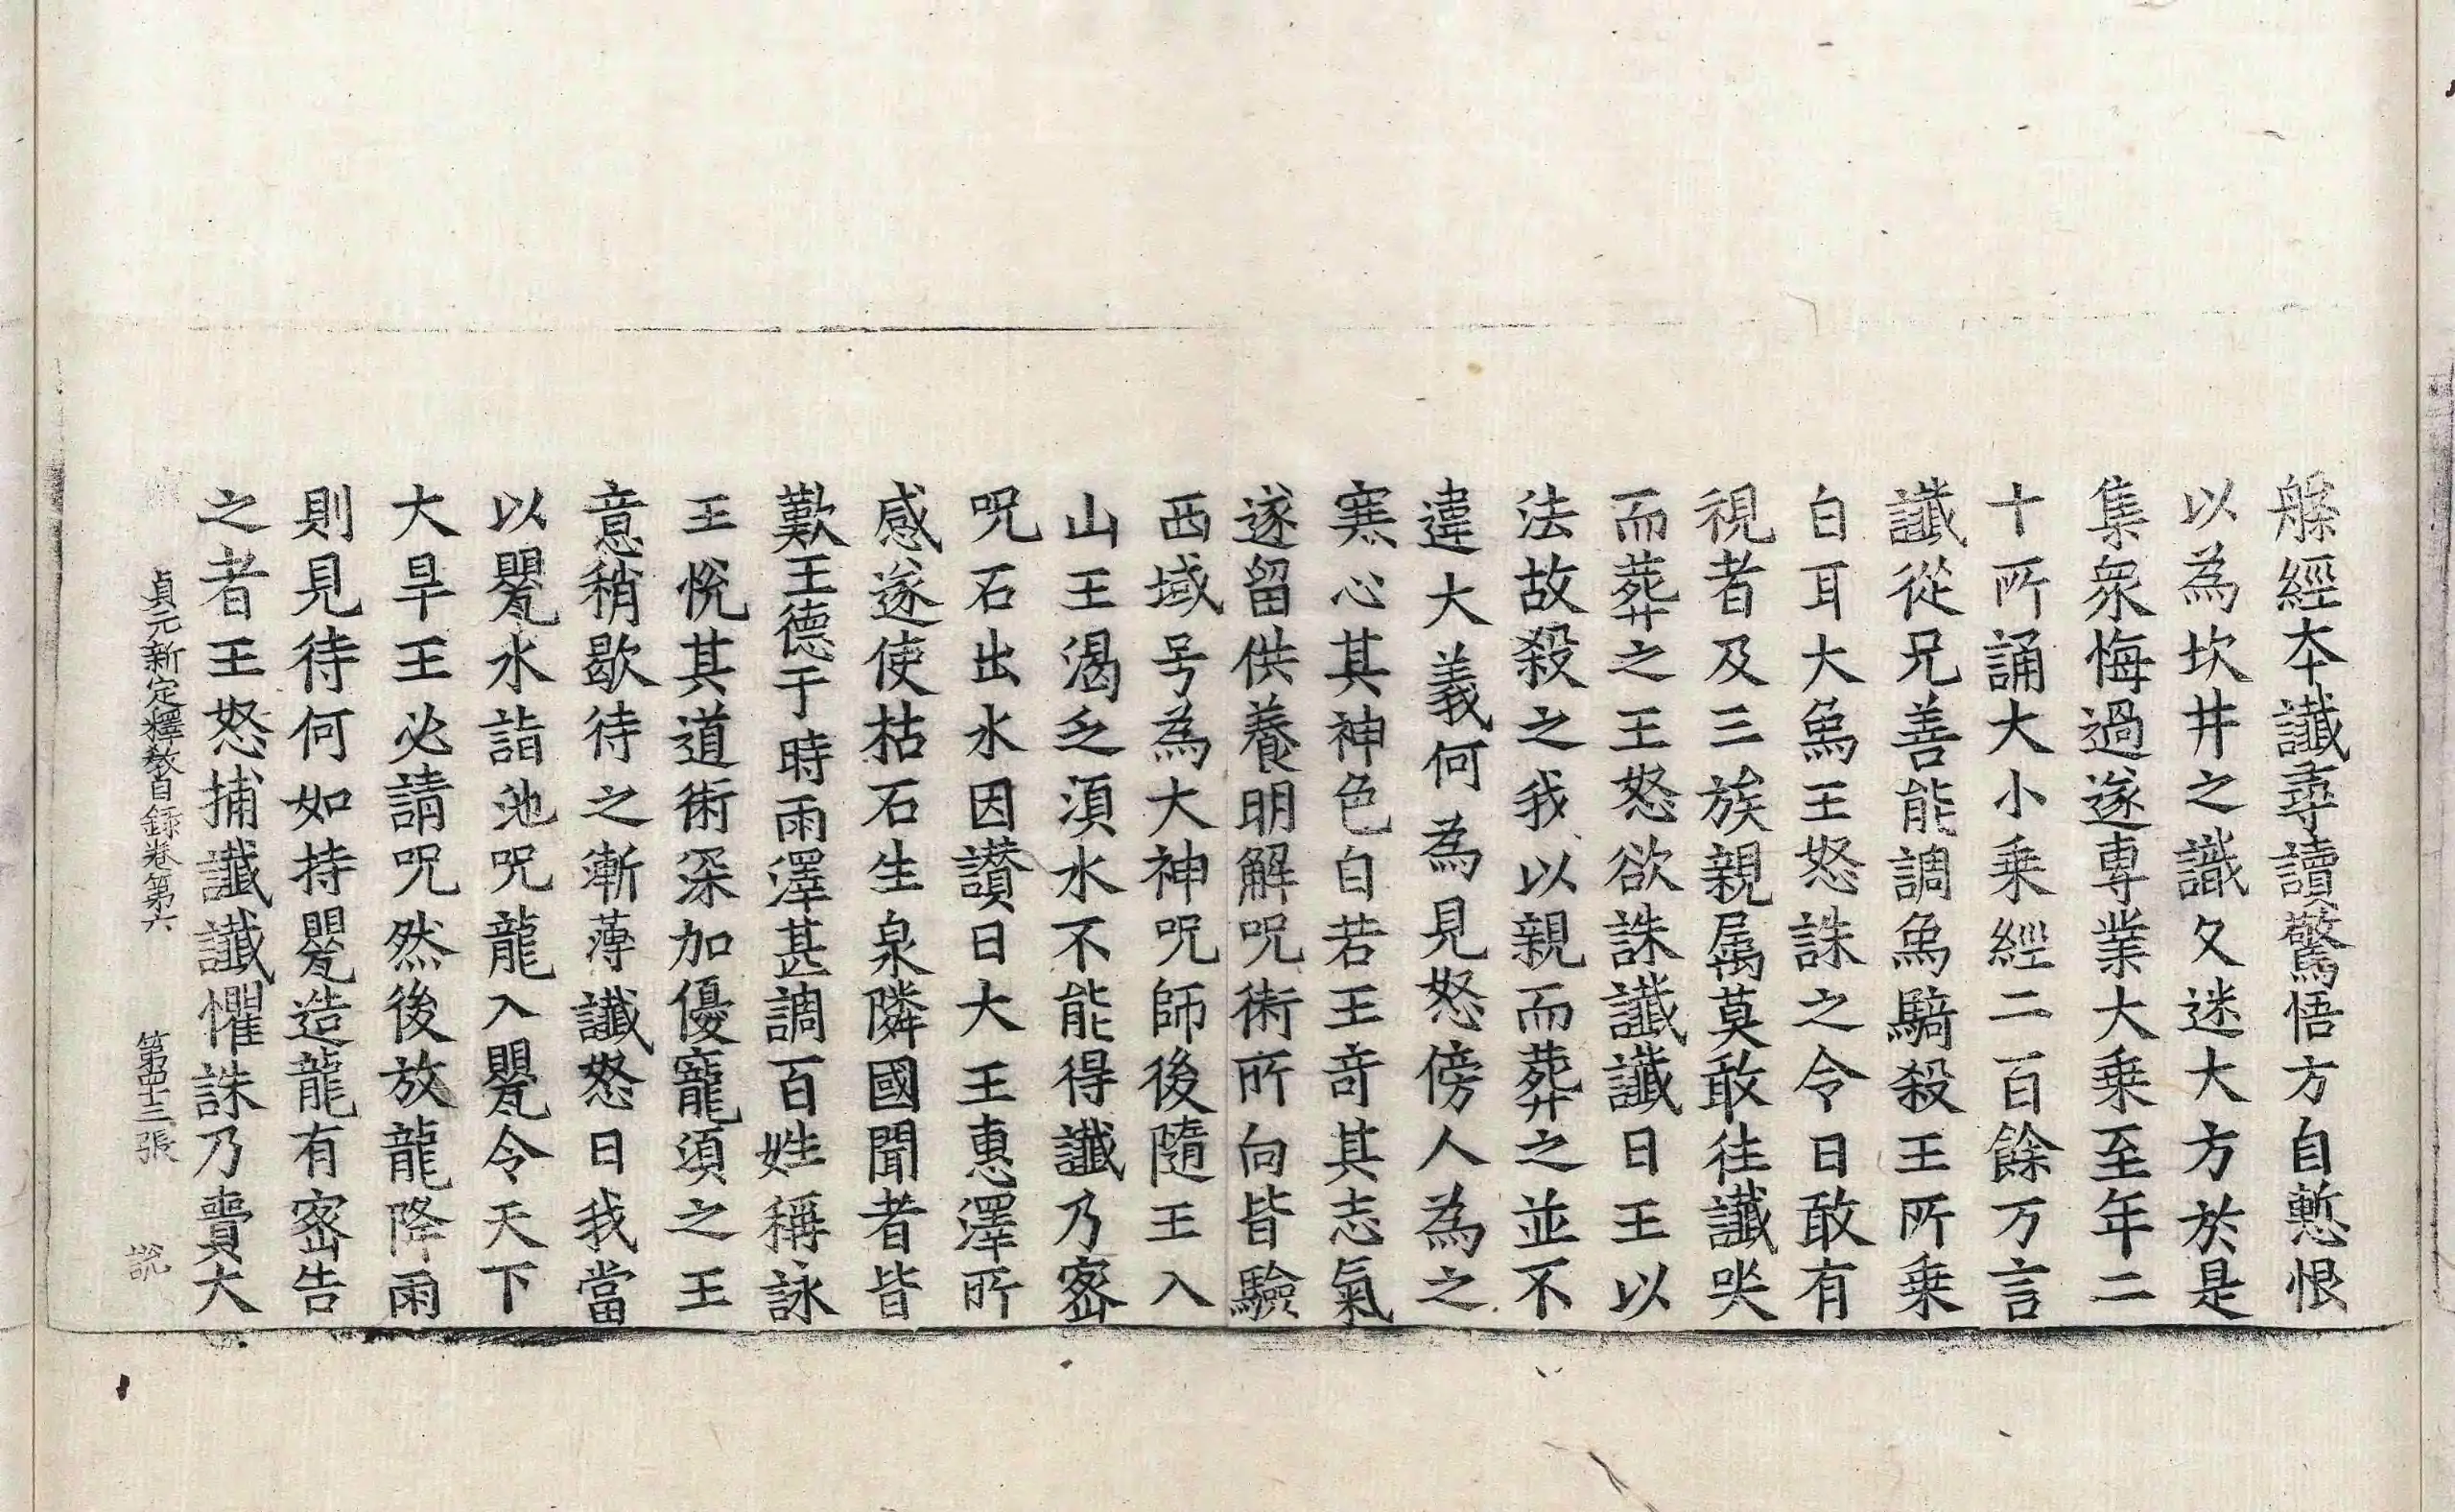 槃經本讖尋讀驚悟方自慙恨
以為坎井之識久迷大方於是
集衆悔過遂專業大乗至年二
十所誦大小乗經二百餘万言
讖從兄善能調象騎殺王所乗
白耳大象王怒誅之令曰敢有
視者及三族親属莫敢往讖哭
而葬之王怒欲誅讖讖曰王以
法故殺之我以親而葬之並不
違大義何為見怒傍人為之
寒心其神色自若王奇其志氣
遂留供養明解呪術所向皆驗
西域号為大神呪師後隨王入
山王渴乏須水不能得讖乃密
呪石出水因讃曰大王惠澤所
感遂使枯石生泉隣國聞者皆
歎王德于時雨澤甚調百姓稱詠
王悅其道術深加優寵須之王
意稍歇待之漸薄讖怒曰我當
以甖水詣池呪龍入甖令天下
大旱王必請呪然後放龍降雨
則見待何如持甖造龍有密告
之者王怒捕讖讖懼誅乃賷大
貞元新定釋教目錄卷第六 第四十三張 說